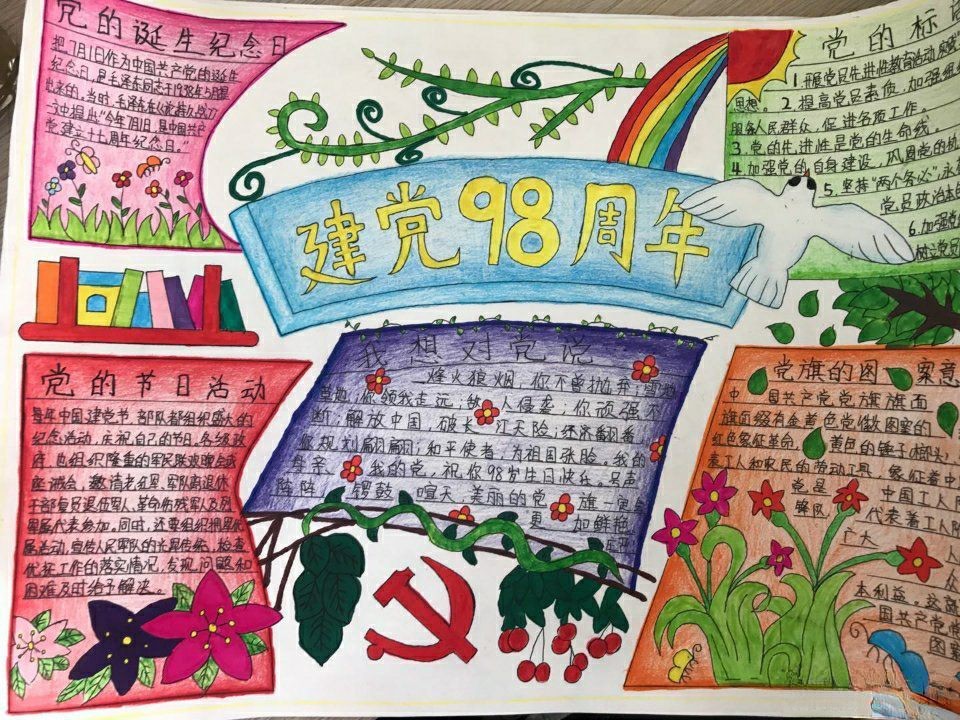 党的诞生纪念日
把7月1日作为中国共产党的诞生
纪念日,是毛泽东同志于1938年5月提
出来的,当时,毛泽东《论持久战》
一文中提出“今年7月1日,是中国共产
党建立十七周年纪念日。”
建党98周年
党的标
1.开展党员先进性教育活动
思想。2.提高党员素质,加强组
服务人民群众,促进各项工作。
3.党的先进性是党的生命线。
4.加强党的自身建设,巩固党的
5.坚持“两个务必”永
党员政治本
6.加强党
树立党员
党的节日活动
每年中国建党节,部队都组织盛大的
纪念活动,庆祝自己的节日,各级政
府,也组织隆重的军民联欢晚会或
座谈会,邀请老红军、军队离退休
干部复员退伍军人,革命伤残军人及烈
军属代表参加。同时,还要组织拥军优
属活动,宣传人民军队的光辉传统,检查
优抚工作的落实情况,发现问题和
困难及时给予解决。
我想对党说
烽火狼烟,你不曾抛弃;
你领我走远;敌人侵袭;你顽强不
断;解放中国,破长江天险;经济翻番,
你规划翩翩;和平使者,为祖国张脸。我的
母亲,我的党,祝你98岁生日快乐。只声
阵阵,锣鼓喧天,美丽的党旗一定会
更加鲜艳
党旗的图案意
中国共产党党旗旗面
旗面缀有金黄色党徽图案的
红色象征革命,黄色的锤子(榔头)
着工人和农民的劳动工具,象征着中
党是中国工人
锋队,代表着工人阶
广大人
众
本利益。这部
国共产党党
图案